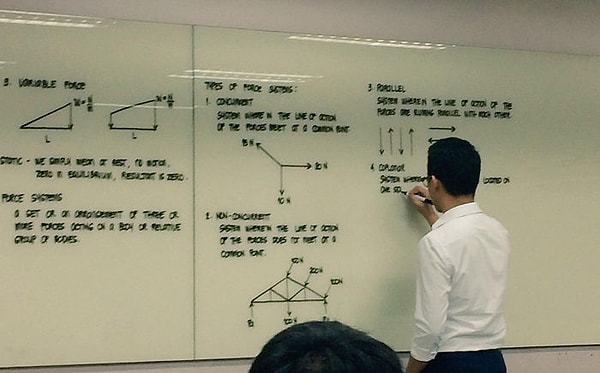 3. VARIABLE FORCE
L
L
STATIC - WE SIMPLY MEAN AT REST, NO MOTION,
ZERO IN EQUILIBRIUM, RESULTANT IS ZERO.
FORCE SYSTEMS
A SET OR AN ARRANGEMENT OF THREE OR
MORE FORCES ACTING ON A BODY OR RELATIVE
GROUP OF BODIES.
TYPES OF FORCE SYSTEMS:
1. CONCURRENT
SYSTEM WHERE IN THE LINE OF ACTION
OF THE FORCES MEET AT A COMMON POINT.
20 N
10 N
2. NON-CONCURRENT
SYSTEM WHERE'IN THE LINE OF ACTION
OF THE FORCES DOES NOT MEET AT A
COMMON POINT.
100N
200N
100N
3. PARALLEL
SYSTEM WHEREIN THE LINE OF ACTION OF THE
FORCES ARE RUNNING PARALLEL WITH EACH OTHER.
4. COPLANAR
SYSTEM WHERE LOCATED ON
ONE